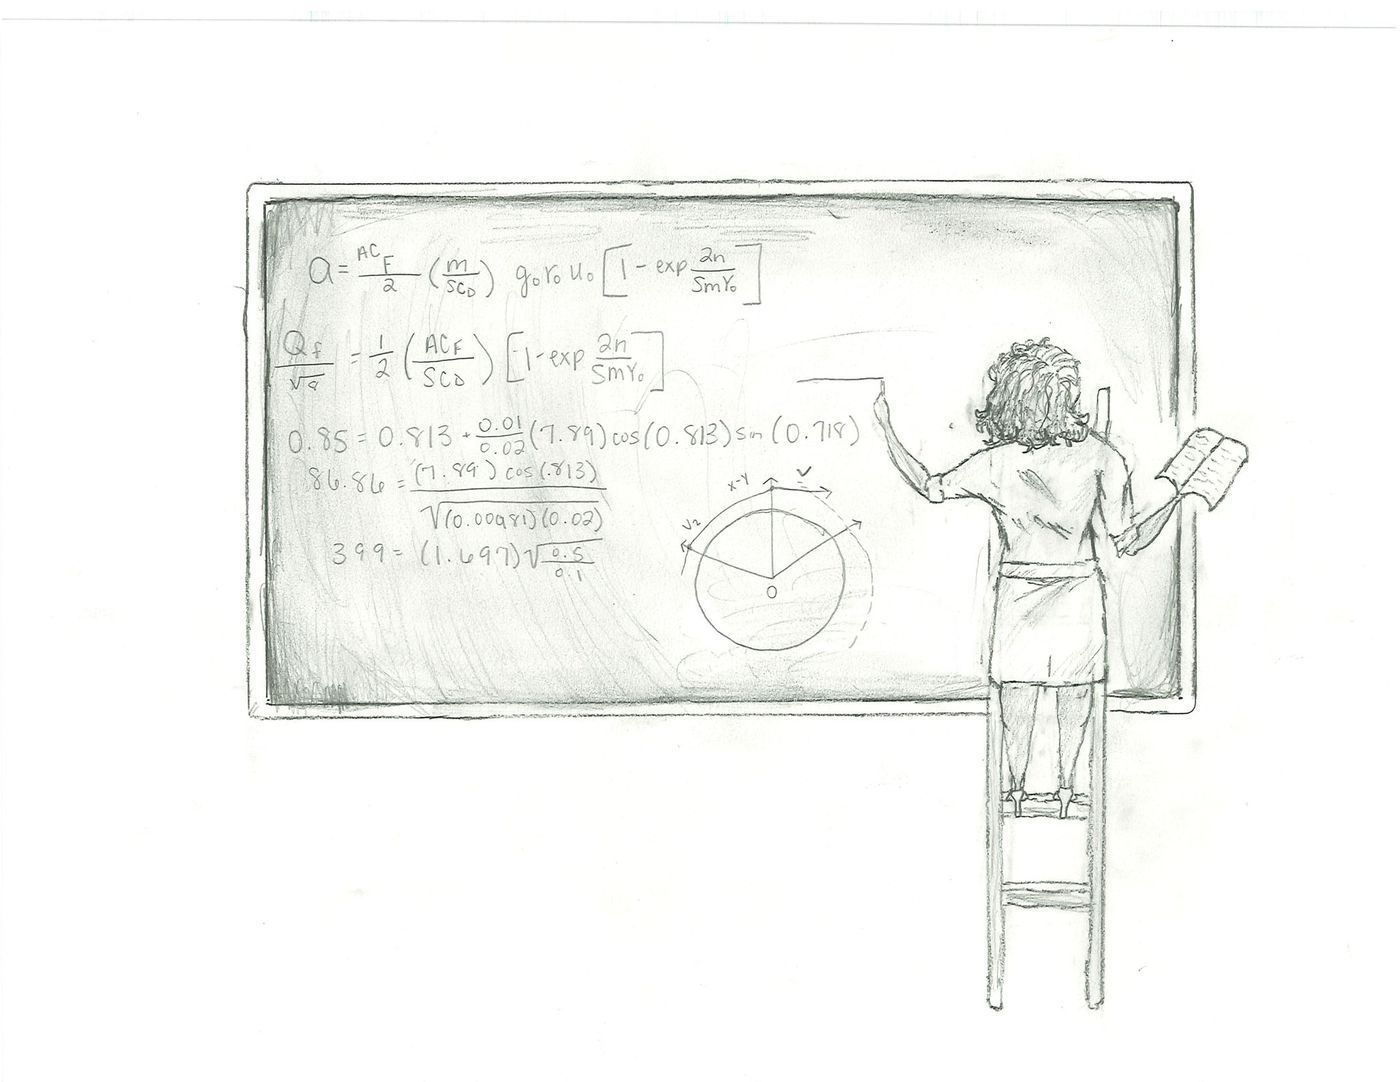 a = AC_F/2 (m/SC_D) g₀r₀u₀ [1 - exp 2n/SmY₀]
Q_f/√a = 1/2 (AC_F/SC_D) [1 - exp 2n/SmY₀]
0.85 = 0.813 + 0.01/0.02 (7.89) cos(0.813) sin (0.718)
86.86 = (7.89) cos(.813)/√(0.00981)(0.02)
399 = (1.697)√0.5/0.1
x-y
V
V2
O